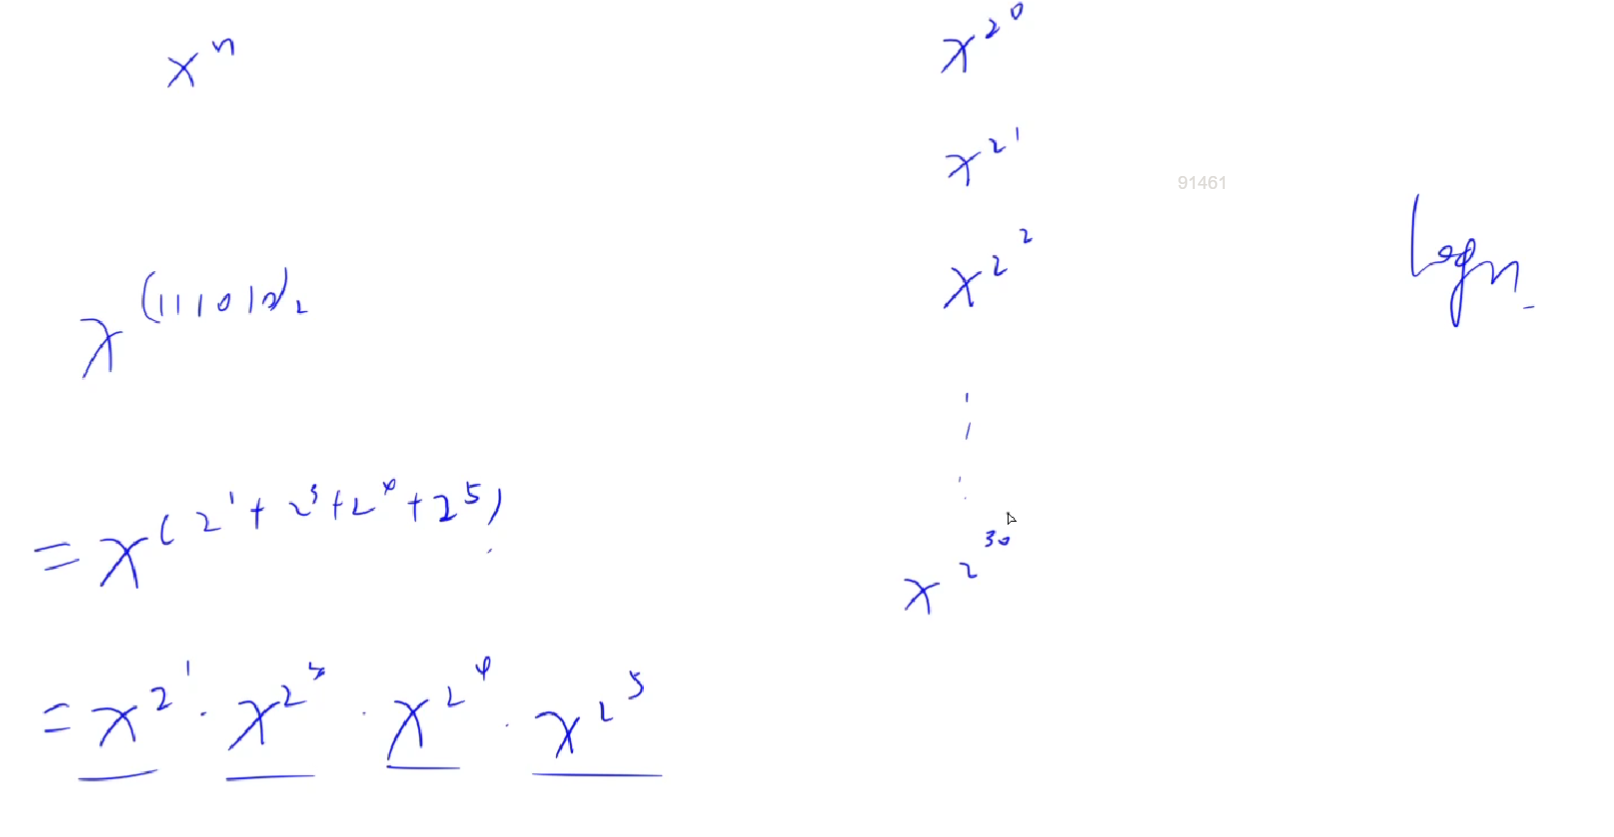 xⁿ
x^(111010)₂
= x^(2¹ + 2³ + 2⁴ + 2⁵)
= x^2¹ · x^2³ · x^2⁴ · x^2⁵
x^2⁰
x^2¹
x^2²
x^2³⁰
91461
log n